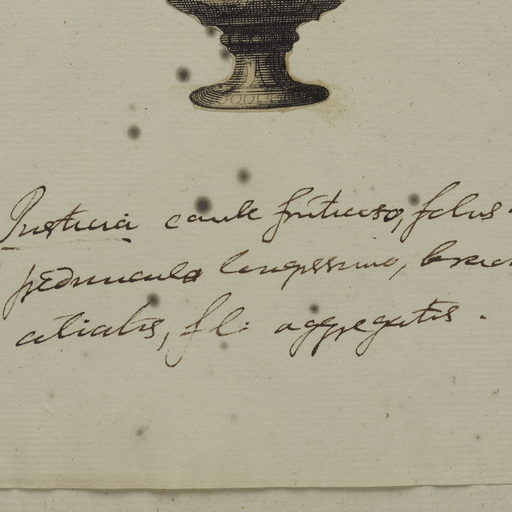 Justicia caule fruticoso, foliis
pedunculo longissimo, brac
ciliatis, fl: aggregatis.